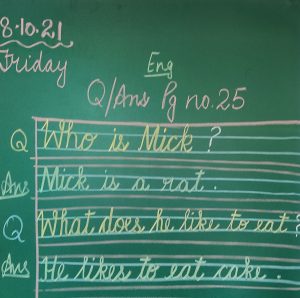 8.10.21
Friday
Eng
Q/Ans Pg no. 25
Q Who is Mick ?
Ans Mick is a rat .
Q What does he like to eat ?
Ans He likes to eat cake .